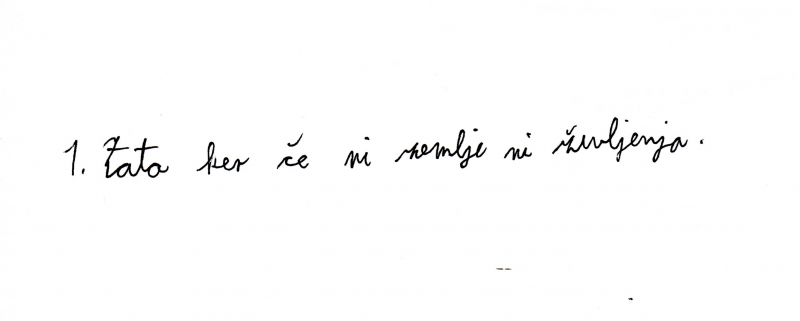 1. Zato ker če ni zemlje ni življenja.